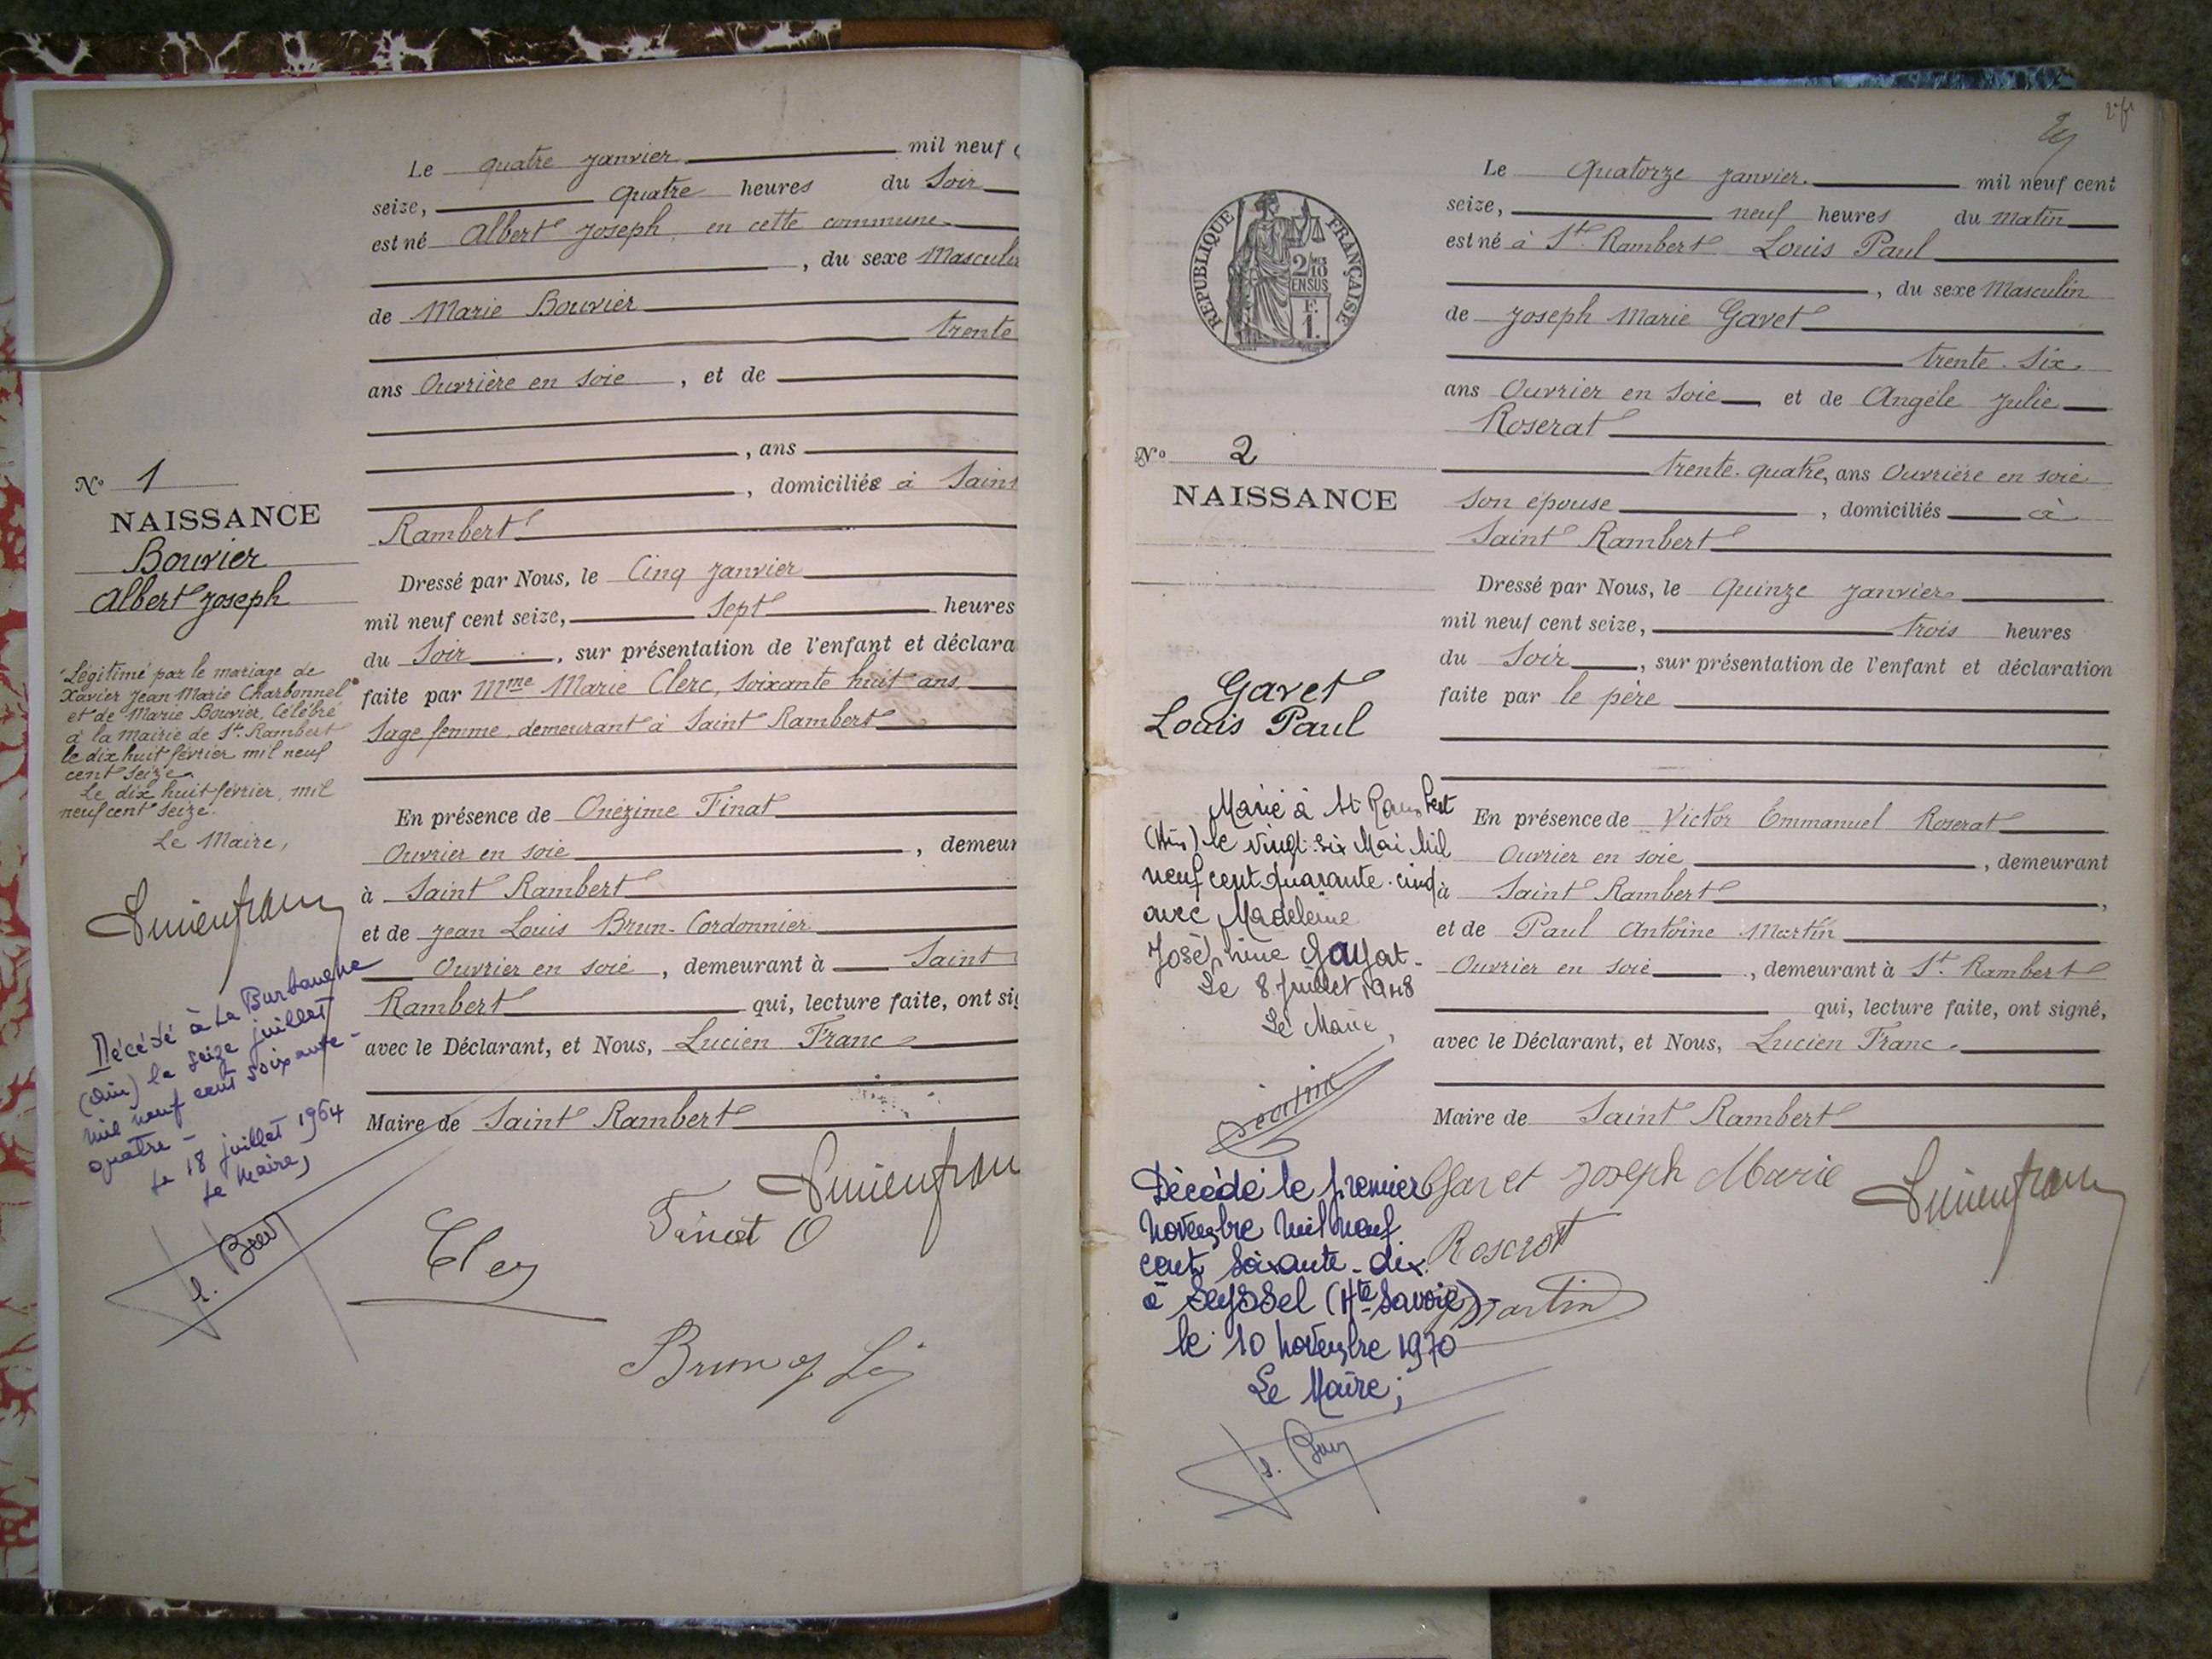 Le quatre janvier mil neuf
seize, quatre heures du Soir
est né Albert Joseph, en cette commune
, du sexe Masculin
de Marie Bouvier
trente
ans Ouvrière en soie , et de
, ans
, domiciliée à Saint
Rambert
Dressé par Nous, le Cinq janvier
mil neuf cent seize, sept heures
du Soir , sur présentation de l'enfant et déclara
faite par Mme Marie Clerc, soixante huit ans
Sage femme, demeurant à Saint Rambert
En présence de Onézime Tinat
Ouvrier en soie , demeur
à Saint Rambert
et de Jean Louis Brun-Cordonnier
Ouvrier en soie , demeurant à Saint
Rambert qui, lecture faite, ont sig
avec le Déclarant, et Nous, Lucien Franc
Maire de Saint Rambert
Tinat O
Brun
No 1
NAISSANCE
Bouvier
Albert Joseph
Légitimé par le mariage de
Xavier Jean Marie Charbonnel
et de Marie Bouvier, Célébré
à la mairie de St. Rambert
le dix huit février mil neuf
cent seize.
Le dix huit février, mil
neuf cent seize.
Le Maire,
Lucien Franc
Décédé à La Burbanche
(Ain) le seize juillet
mil neuf cent soixante-
quatre -
Le 18 juillet 1964
Le Maire,
2
Le Quatorze janvier. mil neuf cent
seize, neuf heures du matin
est né à St. Rambert Louis Paul
, du sexe Masculin
de Joseph Marie Gavet
trente-six
ans Ouvrier en Soie et de Angèle Julie
Roserat
trente-quatre, ans Ouvrière en soie
son épouse , domiciliés à
Saint Rambert
Dressé par Nous, le quinze janvier
mil neuf cent seize, trois heures
du Soir , sur présentation de l'enfant et déclaration
faite par le père
En présence de Victor Emmanuel Roserat
Ouvrier en soie , demeurant
à Saint Rambert ,
et de Paul Antoine Martin
Ouvrier en soie , demeurant à St. Rambert
qui, lecture faite, ont signé,
avec le Déclarant, et Nous, Lucien Franc
Maire de Saint Rambert
Gavet Joseph Marie
Lucien Franc
Roserat
Martin
REPUBLIQUE FRANÇAISE
2/10
EN SUS
F.
1.
No 2
NAISSANCE
Gavet
Louis Paul
Marié à St Rambert
(Ain) le vingt-six Mai Mil
neuf cent quarante-cinq
avec Madeleine
Joséphine
Le 8 Juillet 1948
Le Maire,
Décédé le premier
Novembre mil neuf
cent soixante-dix
à Seyssel (Hte Savoie) -
le 10 novembre 1970
Le Maire;